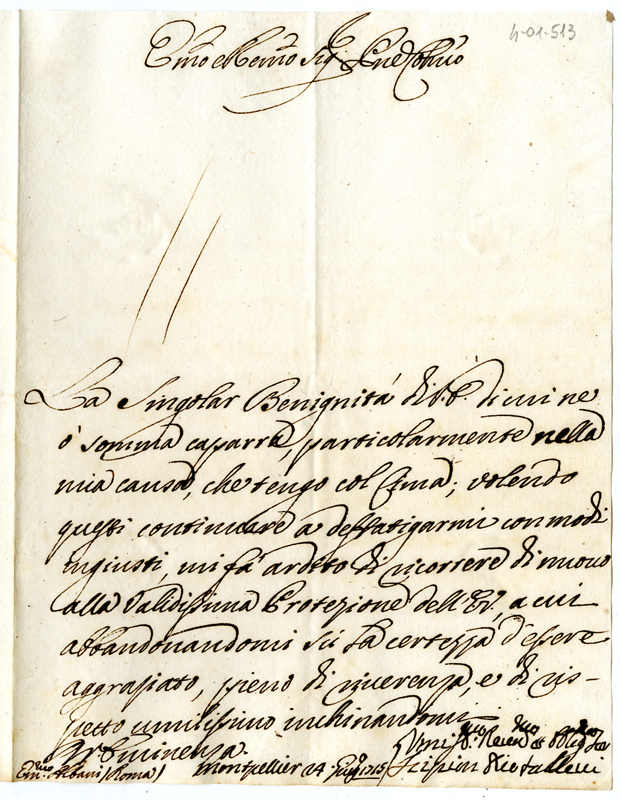 4-01-513
Emo e Rmo Sig. Pne Colmo
La Singolar Benignità di V.E. di cui ne
ò somma caparra, particolarmente nella
mia causa, che tengo col Cima; volendo
questi continuare a deffatigarmi con modi
ingiusti, mi fà ardito di ricorrere di nuovo
alla Validissima Protezione dell'EV, a cui
abbandonandomi sù la certezza d'essere
aggraziato, pieno di riverenza, e di ris-
petto umilissimo inchinandomi
Vr. Eminenza.
Em. Albani (Roma) Montpellier 24 1715
Scipion